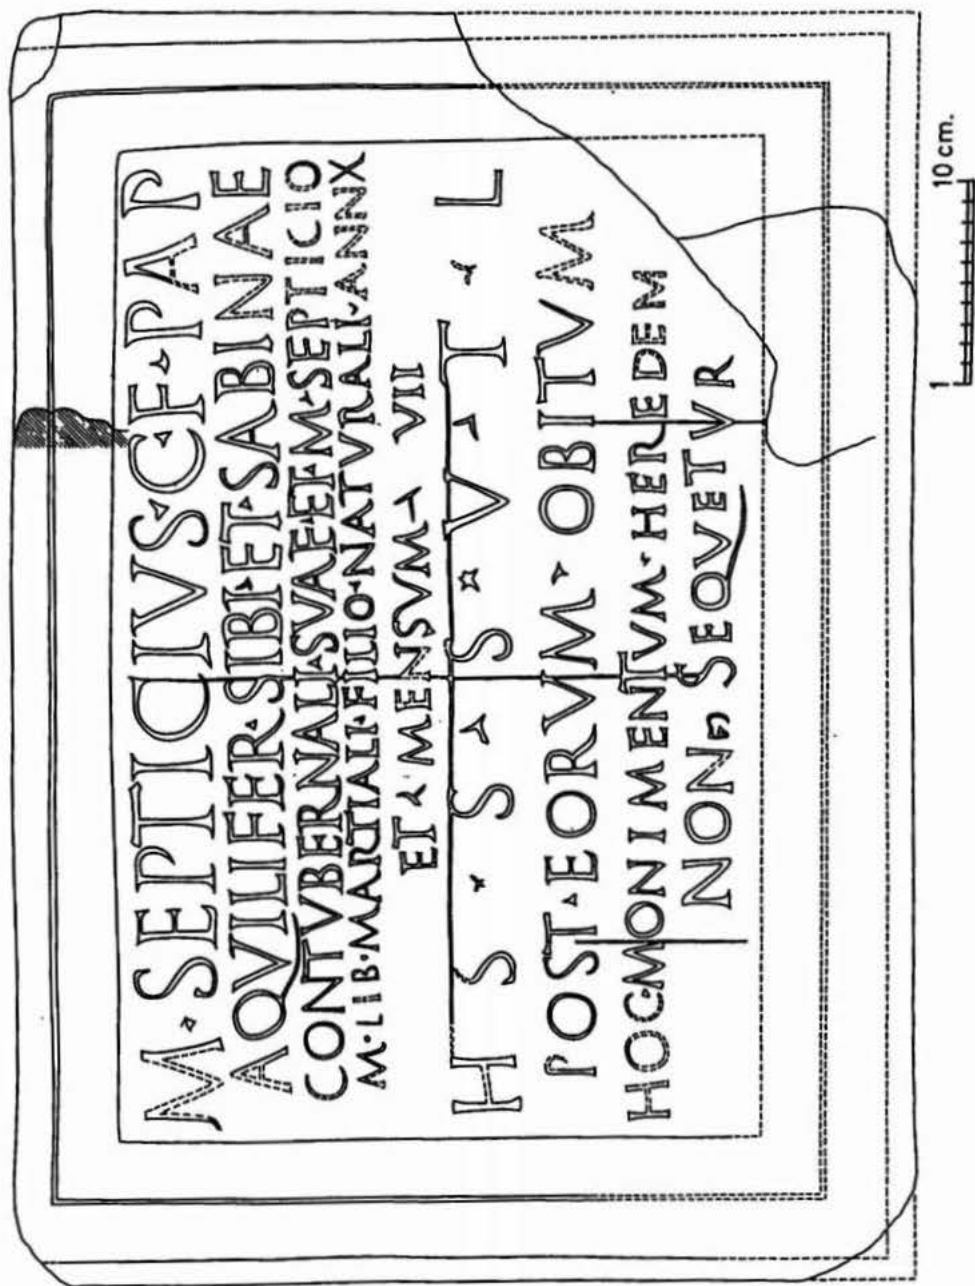 M · SEPTICIVS · C · F · PAP
AQVILIFER · SIBI · ET · SABINAE
CONTVBERNALI · SVAE · ET · M · SEPTICIO
M · LIB · MARTIALI · FILIO · NATVRALI · ANN X
ET · MENSVM · VII
H · S · S · S · V · T · L
POST · EORVM · OBITVM
HOC · MONIMENTVM · HEREDEM
NON SEQVETVR
1 10 cm.